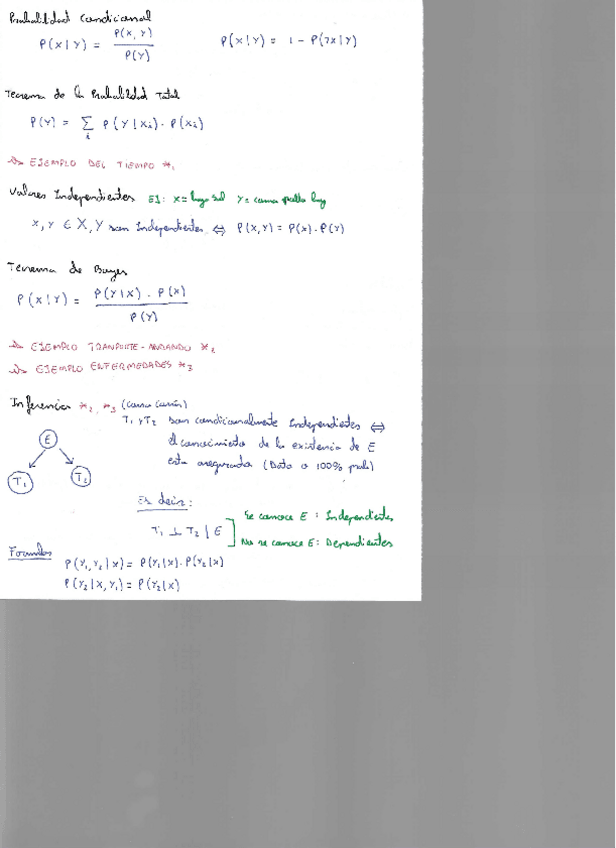 Probabilidad Condicional
P(X|Y) = P(X,Y) / P(Y)    P(X|Y) = 1 - P(¬X|Y)
Teorema de la Probabilidad Total
P(Y) = Σ_i P(Y|Xi) · P(Xi)
EJEMPLO DEL TIEMPO *1
Valores Independientes EJ: X = hay sol Y =
X, Y ∈ X, Y son Independientes ⇔ P(X,Y) = P(X) · P(Y)
Teorema de Bayes
P(X|Y) = P(Y|X) · P(X) / P(Y)
EJEMPLO TRANPORTE-ANDANDO *2
EJEMPLO ENFERMEDADES *3
Inferencia *2, *3 (causa común)
T1 y T2 son condicionalmente Independientes ⇔
el conocimiento de la existencia de E
esta asegurada (Dato o 100% prob)
E
T1 T2
Es decir:
T1 ⊥ T2 | E
Se conoce E : Independientes
No se conoce E: Dependientes
Formulas
P(Y1,Y2|X) = P(Y1|X) · P(Y2|X)
P(Y2|X,Y1) = P(Y2|X)